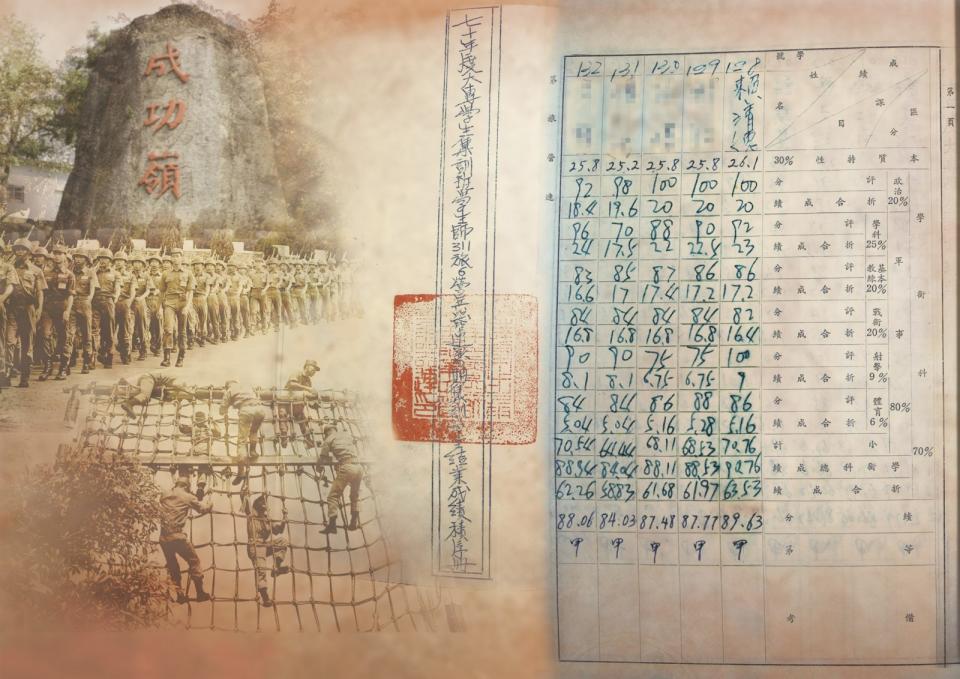 成功嶺
七十年度大專學生集訓班學生師311旅5營
結業成績積序冊
第一頁
第 旅 營 連
成績 課目 區分
學號 姓名
132 131 130 129 128
賴清德
本質特性 30%
25.8 25.2 25.8 25.8 26.1
學術科 70%
軍事 80%
政治 20%
評分
92 98 100 100 100
折合成績
18.4 19.6 20 20 20
學科 25%
評分
96 70 88 90 92
折合成績
24 17.5 22 22.5 23
基本教練 20%
評分
83 85 87 86 86
折合成績
16.6 17 17.4 17.2 17.2
戰術 20%
評分
84 84 84 84 82
折合成績
16.8 16.8 16.8 16.8 16.4
射擊 9%
評分
90 90 75 75 100
折合成績
8.1 8.1 6.75 6.75 9
體育 6%
評分
84 84 86 88 86
折合成績
5.04 5.04 5.16 5.28 5.16
小計
70.54 64.44 68.11 68.53 70.76
學術科總成績
88.94 84.04 88.11 88.53 90.76
折合成績
62.26 58.83 61.68 61.97 63.53
績分
88.06 84.03 87.48 87.77 89.63
等第
甲 甲 甲 甲 甲
備考